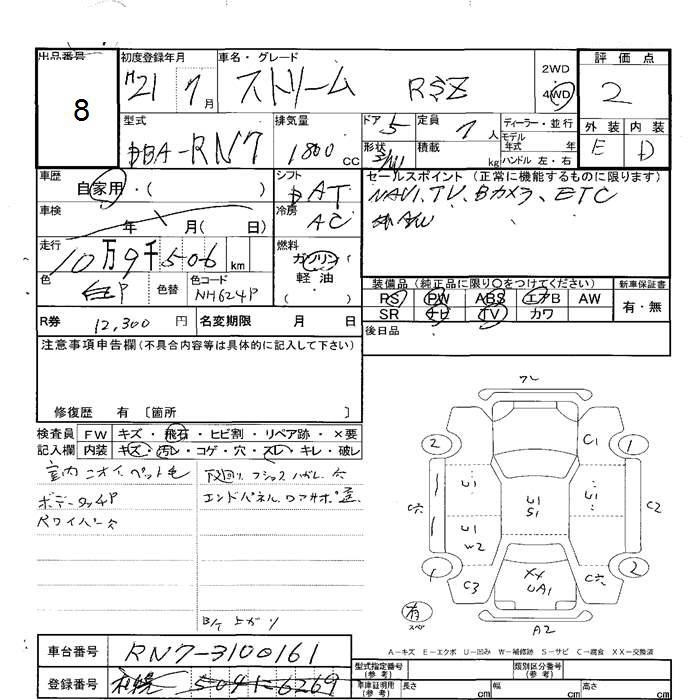 出品番号 初度登録年月 車名・グレード 評価点
8 H21 7月 ストリーム RSZ 2WD 4WD 2
型式 排気量 ドア 5 定員 7人 ディーラー・並行 外装 内装
DBA-RN7 1800 CC 形状 積載 kg モデル年式 年 E D
ハンドル 左・右
車歴 シフト セールスポイント (正常に機能するものに限ります)
自家用・( ) AT NAVI、TV、Bカメラ、ETC
車検 冷房 AC 社外AW
年 月( 日)
走行 燃料
10万9千506 km ガソリン・軽油
色 色替 色コード 装備品 (純正品に限り○をつけてください) 新車保証書
NH624P PS PW ABS エアB AW 有・無
R券 12,300円 名変期限 月 日 SR ナビ TV カワ
後日品
注意事項申告欄(不具合内容等は具体的に記入して下さい)
修復歴 有 〔箇所 〕
検査員 FW キズ・飛石・ヒビ割・リペア跡・×要
記入欄 内装 キズ・汚レ・コゲ・穴・スレ・キレ・破レ
室内ニオイ、ペット毛
ボデータッチP
Rワイパー欠
下回り
エンドパネル
フレ
2 C1 1
U1 U1 S1
C欠 C2
U1 W2
1 C3 XX UA1 C欠 2
有 スペ
A2
A-キズ E-エクボ U-凹み W-補修跡 S-サビ C-腐食 XX-交換済
車台番号 RN7-3100161
型式指定番号 (参考) 類別区分番号 (参考)
登録番号 札幌 504 6269
車庫証明用 (参考) 長さ cm 幅 cm 高さ cm